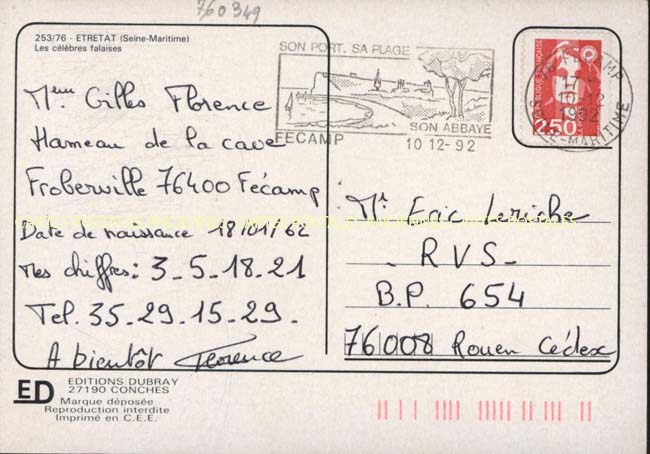 760349
253/76 - ETRETAT (Seine-Maritime)
Les célèbres falaises
SON PORT. SA PLAGE
FECAMP
SON ABBAYE
10 12-92
FECAMP
17 H
10-12
1992
SEINE-MARITIME
REPUBLIQUE FRANÇAISE
2,50
Mme Gilles Florence
Hameau de la cave
Froberville 76400 Fécamp
Date de naissance 18/01/62
Mes chiffres: 3_5_18_21
Tel. 35_29_15_29_
A bientôt Florence
Mr Eric Leriche
- RVS -
B.P. 654
76008 Rouen Cédex
ED
EDITIONS DUBRAY
27190 CONCHES
Marque déposée
Reproduction interdite
Imprimé en C.E.E.